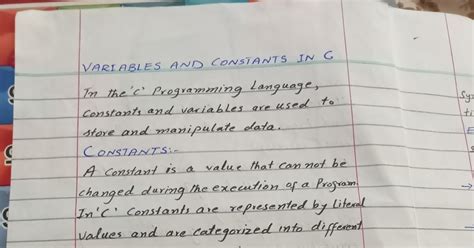 VARIABLES AND CONSTANTS IN C
In the 'C' Programming Language,
Constants and variables are used to
store and manipulate data.
CONSTANTS:-
A Constant is a value that can not be
changed during the execution of a Program
In 'C' Constants are represented by literal
values and are categorized into different